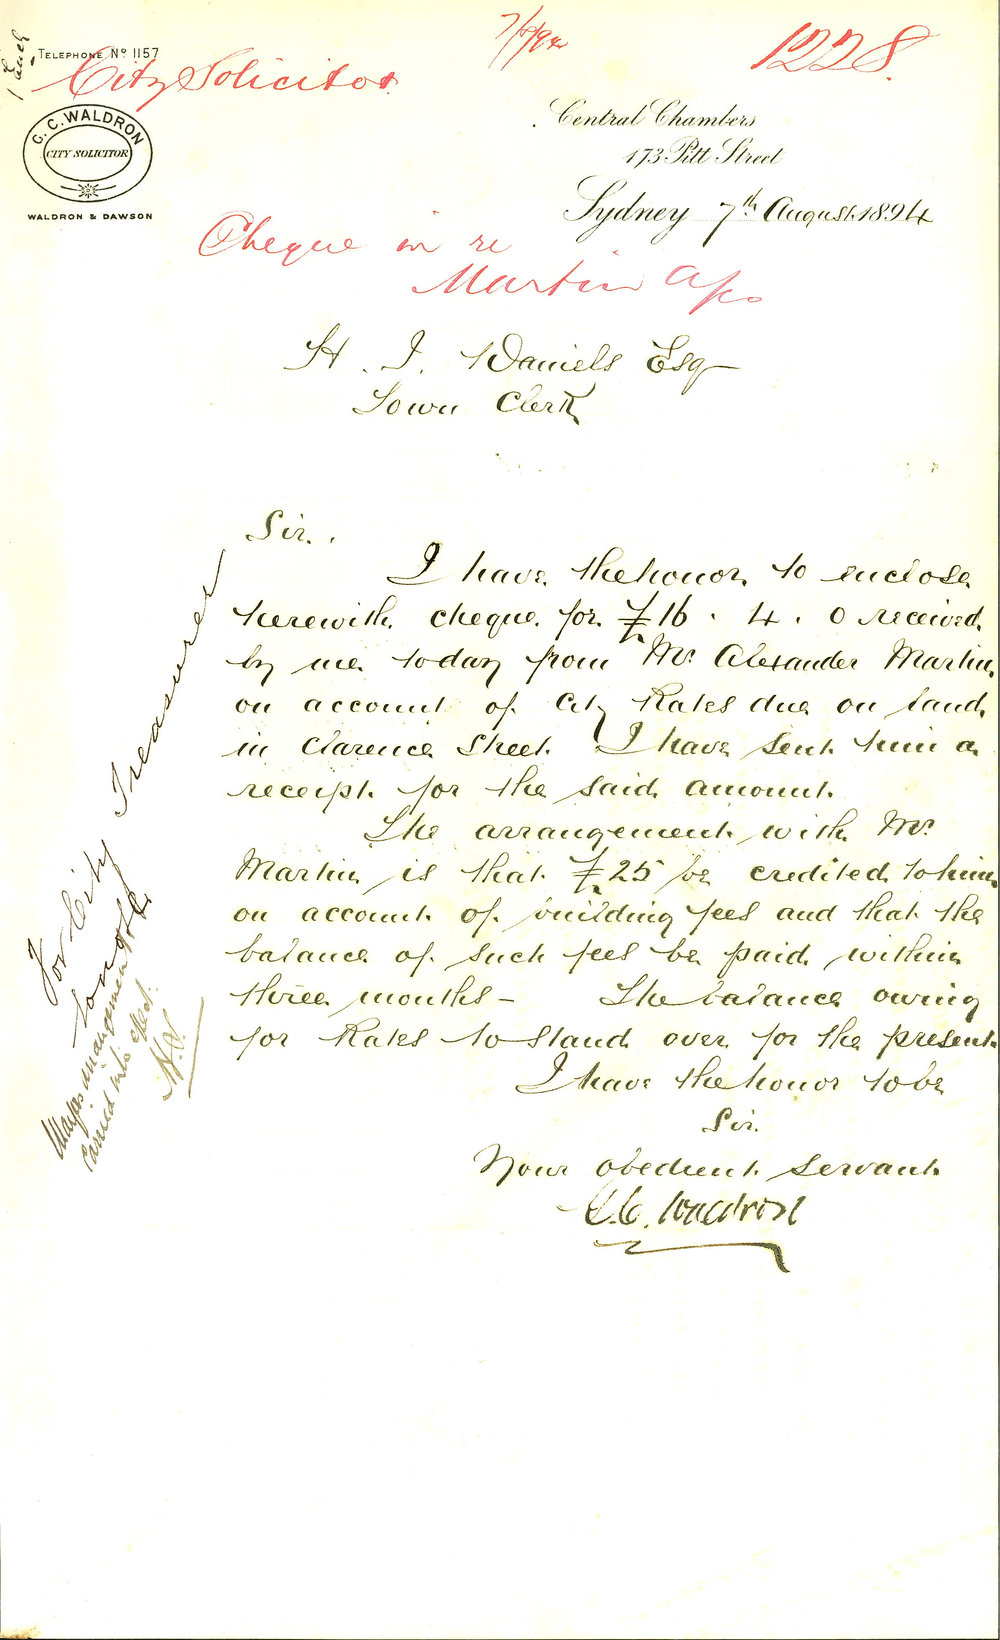 1 Encl
TELEPHONE No 1157
7/8/94
1228.
City Solicitor
G. C. WALDRON
CITY SOLICITOR
WALDRON & DAWSON
Central Chambers
173 Pitt Street
Sydney 7th August 1894
Cheque in re
Martin a/c
H. J. Daniels Esq
Town Clerk
Sir.
I have the honor to enclose
herewith cheque for £16 . 4 . 0 received
by me today from Mr Alexander Martin
on account of City Rates due on land
in Clarence Street. I have sent him a
receipt for the said amount.
The arrangement with Mr
Martin is that £25 be credited to him
on account of building fees and that the
balance of such fees be paid within
three months - The balance owing
for Rates to stand over for the present.
I have the honor to be
Sir.
Your obedient servant
G. C. Waldron
For City Treasurer
to note
arrangement
carried into effect.